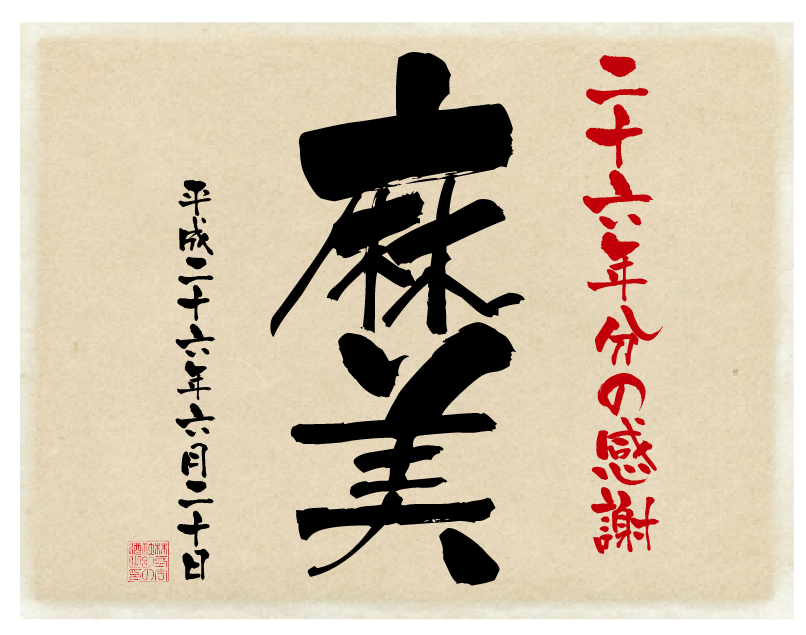 二十六年分の感謝
麻美
平成二十六年六月二十日